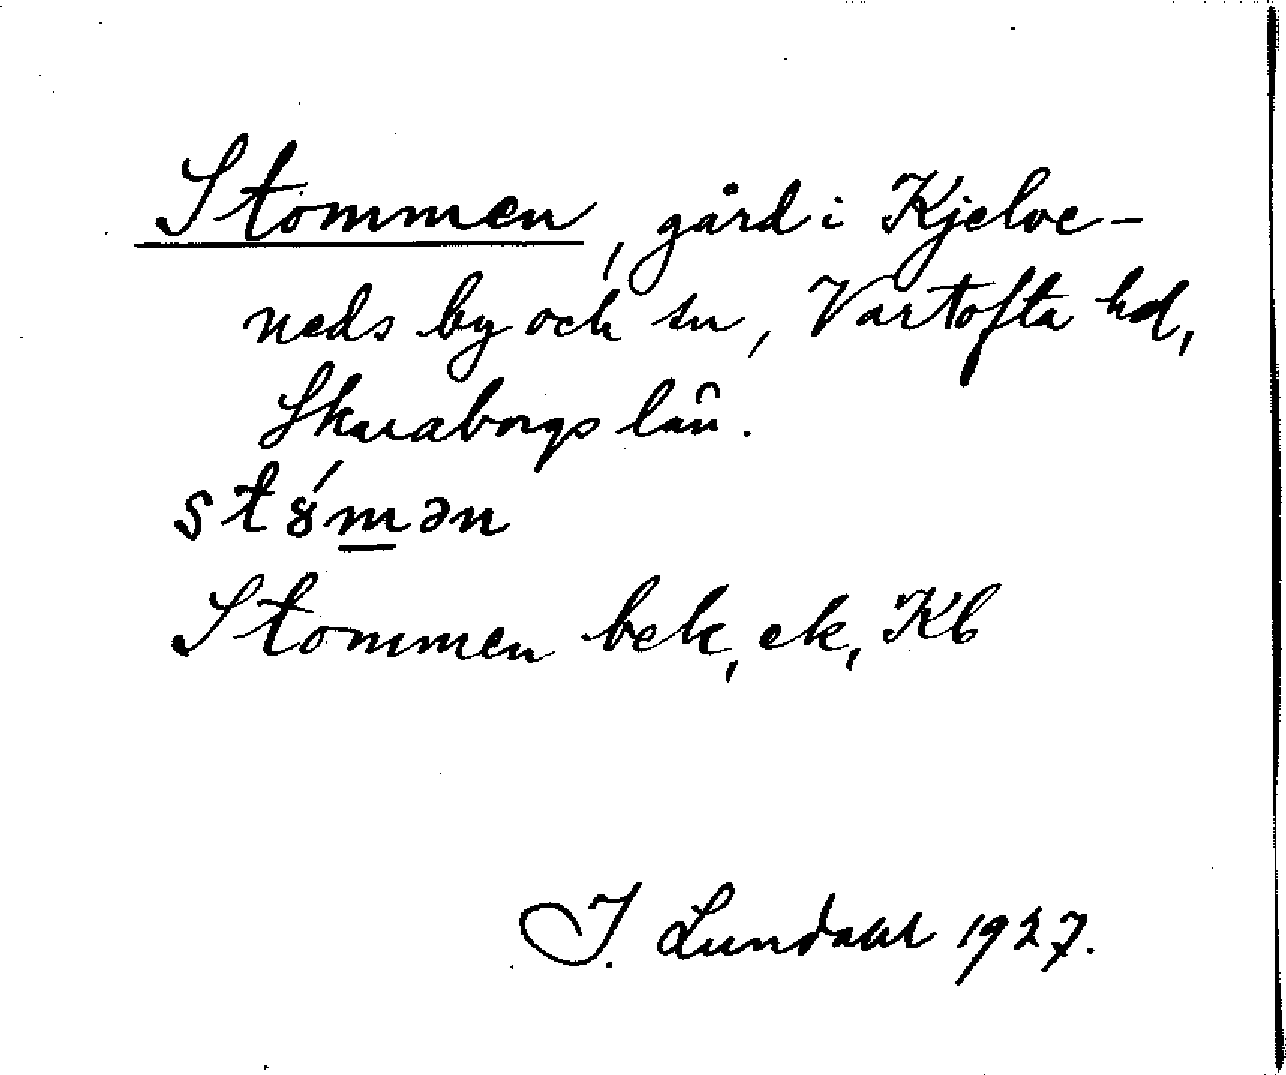 Stommen, gård i Kjelve-
neds by och sn, Vartofta hd,
Skaraborgs län.
st8́mən
Stommen bek, ek, Kb
I. Lundahl 1927.